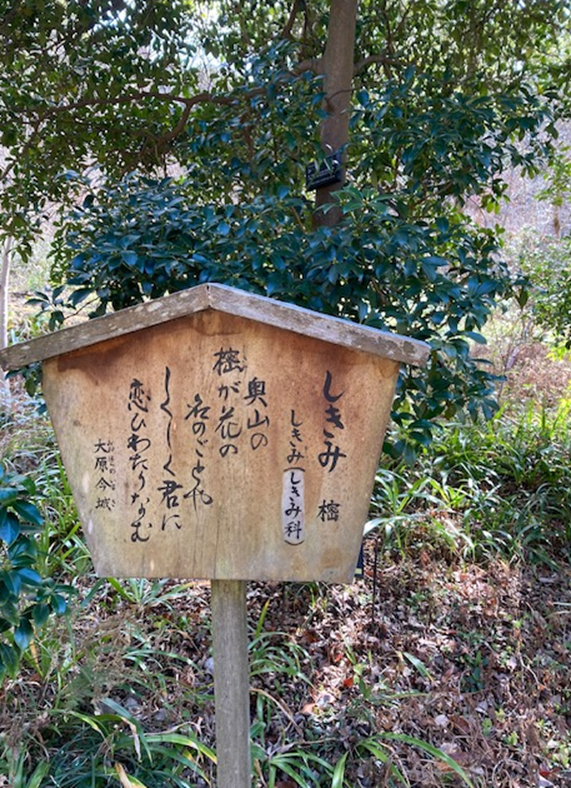 しきみ 樒
しきみ(しきみ科)
奥山の
樒が花の
名のごとや
しくしく君に
恋ひわたりなむ
大原今城